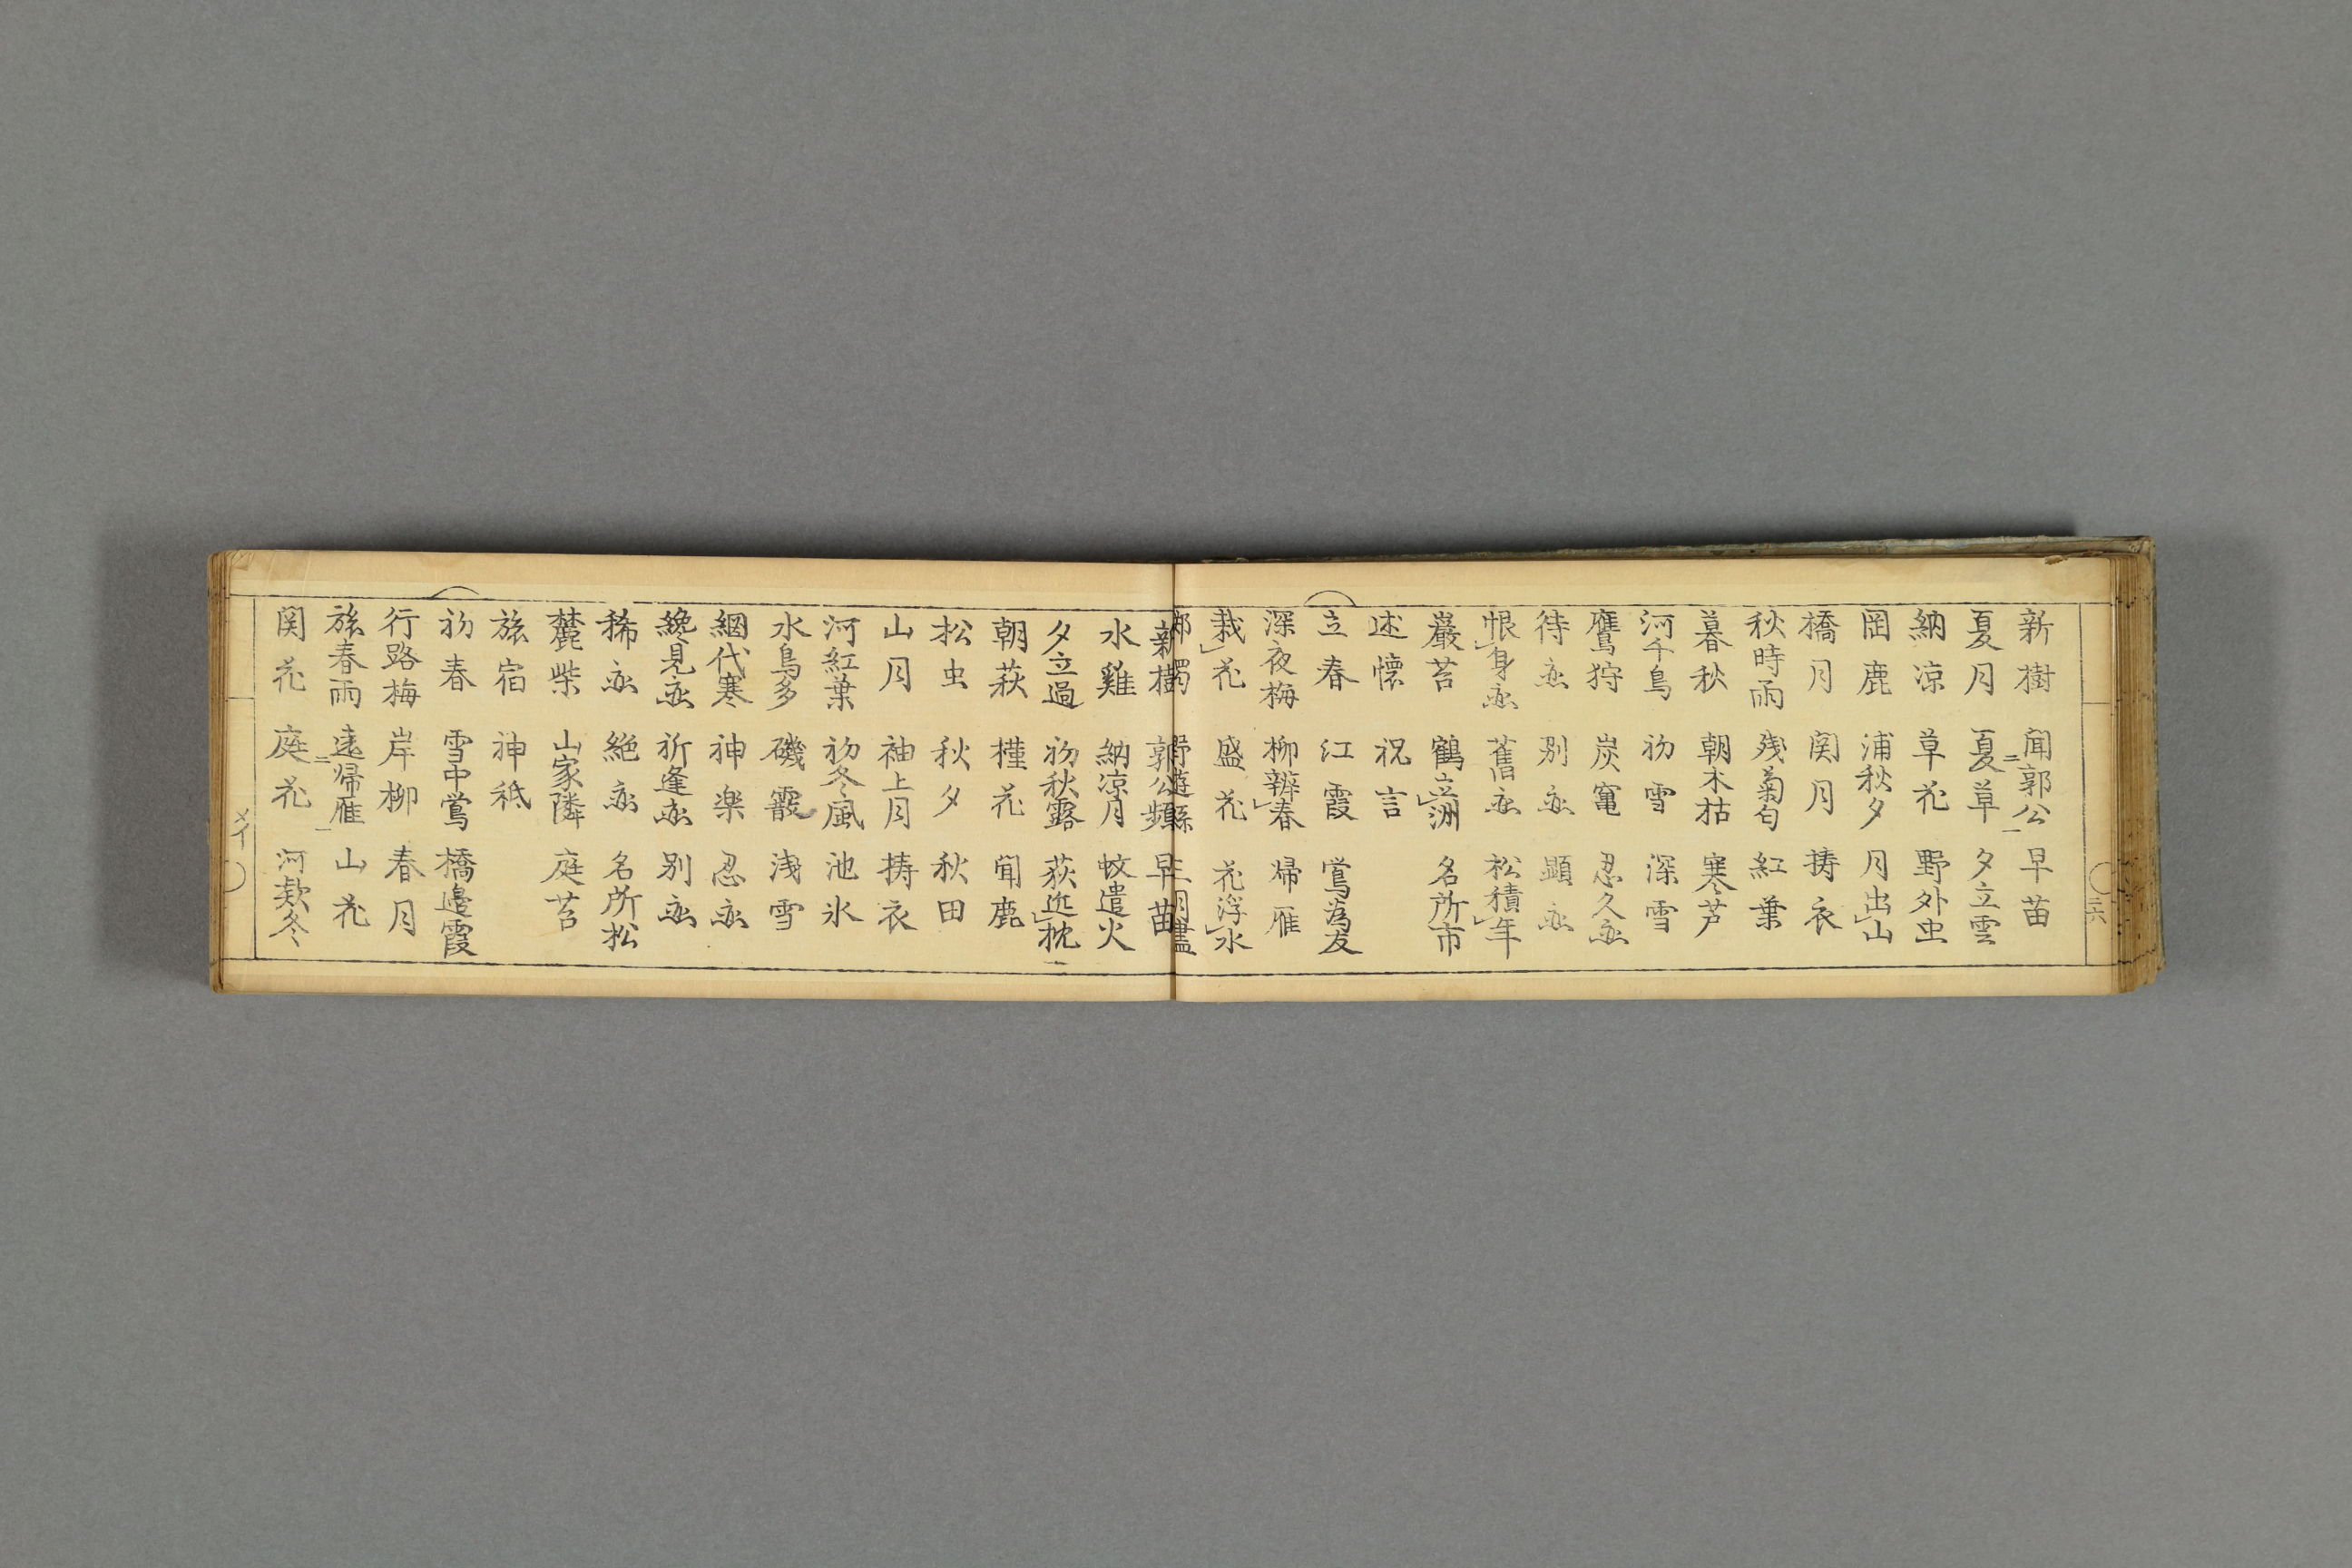 新樹 聞郭公 早苗
夏月 夏草 夕立雲
納凉 草花 野外虫
岡鹿 浦秋夕 月出山
橋月 関月 擣衣
秋時雨 残菊匂 紅葉
暮秋 朝木枯 寒芦
河千鳥 初雪 深雪
鷹狩 炭竃 忍久恋
待恋 別恋 顕恋
恨身恋 舊恋 松積年
巖苔 鶴立洲 名所市
述懐 祝言
立春 江霞 鴬為友
深夜梅 柳辨春 帰雁
栽花 盛花 花浮水
新樹 郭公頻 早苗
水雞 納凉月 蚊遣火
夕立過 初秋露 荻近枕
朝萩 槿花 聞鹿
松虫 秋夕 秋田
山月 袖上月 擣衣
河紅葉 初冬風 池氷
水鳥多 磯霰 浅雪
網代寒 神楽 忍恋
纔見恋 祈逢恋 別恋
稀恋 絶恋 名所松
麓柴 山家隣 庭苔
旅宿 神祇
初春 雪中鴬 橋邊霞
行路梅 岸柳 春月
旅春雨 遠帰雁 山花
関花 庭花 河欵冬
メイ